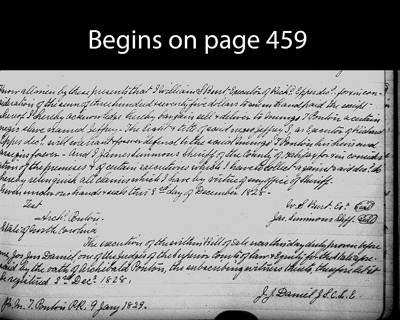 Begins on page 459
Know all men by these presents that I William S Burt Executor of Rich'd Epps dec'd. for & in con-
sideration of the sum of three hundred seventy five dollars to me in hand paid the receipt
whereof I hereby acknowledge hereby bargain sell & deliver to T Ponton a certain
negro slave named Jeffrey. The right & title of said negro Jeffrey I, as Executor of Richard
Epps dec'd. will warrant & forever defend to the said T Ponton his heirs and
assigns forever. And I James Simmons Sheriff of the County of Halifax for & in consid
eration of the premises & of certain executions which I have to collect against said dec'd. do
hereby relinquish all claims which I have by virtue of my office of Sheriff.
Given under our hands & seals this 8th day of December 1828.
Test
W. S Burt Ex. Seal
Jas. Simmons Shff. Seal
Arch'd. Ponton
State of North Carolina
The execution of the within Bill of Sale was this day duly proven before
me, Jos. Jno Daniel, one of the Judges of the Superior Courts of law & Equity for the State afore-
said by the oath of Archibald Ponton, the subscribing witness thereto, therefore let it
be registered Dec'r. 1828.
J. J. Daniel J. S. C. L. E.
M. T. Ponton P.R. 9 Jany 1829.